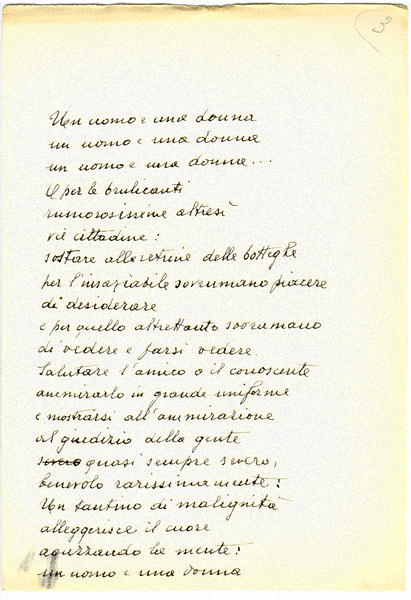 3
Un uomo e una donna
un uomo e una donna
un uomo e una donna...
O per le brulicanti
rumorosissime altresì
vie cittadine:
sostare alle vetrine delle botteghe
per l'insaziabile sovrumano piacere
di desiderare
e per quello altrettanto sovrumano
di vedere e farsi vedere.
Salutare l'amico o il conoscente
ammirarlo in grande uniforme
e mostrarsi all'ammirazione
al giudizio della gente
severo quasi sempre severo,
benevolo rarissimamente:
Un tantino di malignità
alleggerisce il cuore
aguzzando la mente:
un uomo e una donna